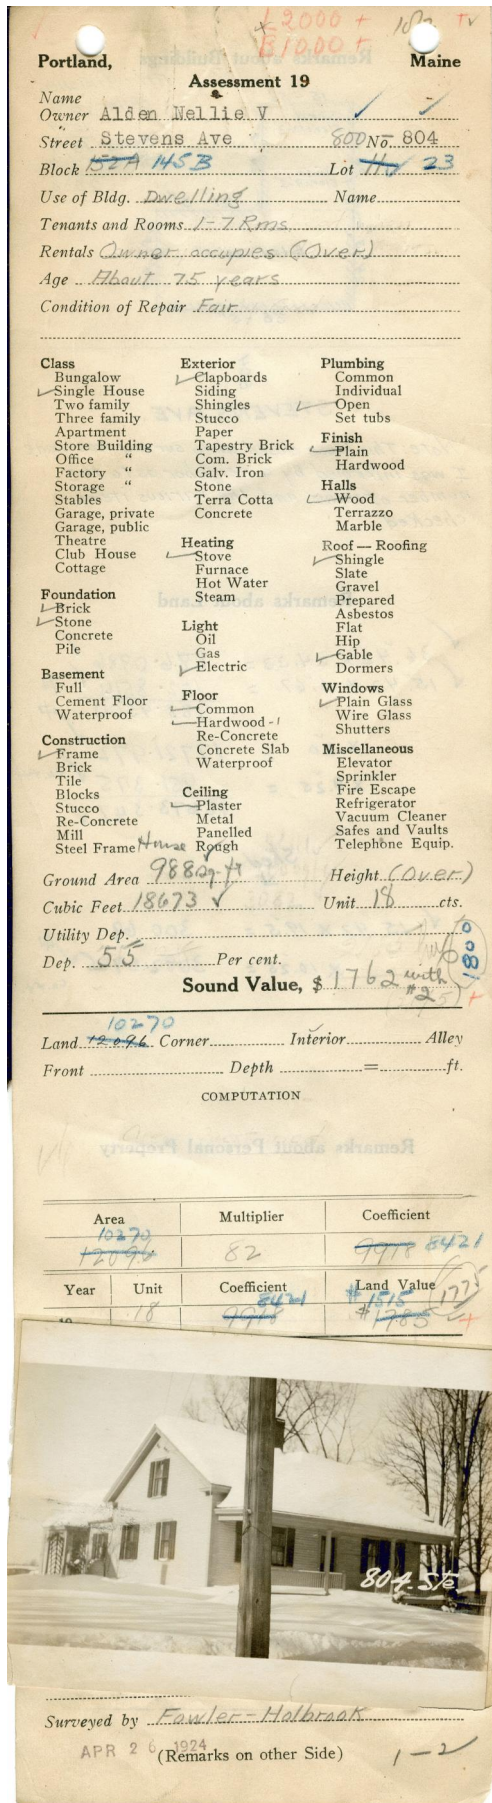 L 2000 +
B 1000 +
Portland, Maine
Assessment 19
Name
Owner Alden Nellie V
Street Stevens Ave 800 No. 804
Block 152A 145B Lot 23
Use of Bldg. Dwelling Name
Tenants and Rooms 1-7 Rms
Rentals Owner occupies (Over)
Age About 75 years
Condition of Repair Fair
Class
Bungalow
Single House
Two family
Three family
Apartment
Store Building
Office "
Factory "
Storage "
Stables
Garage, private
Garage, public
Theatre
Club House
Cottage
Foundation
Brick
Stone
Concrete
Pile
Basement
Full
Cement Floor
Waterproof
Construction
Frame
Brick
Tile
Blocks
Stucco
Re-Concrete
Mill
Steel Frame
Exterior
Clapboards
Siding
Shingles
Stucco
Paper
Tapestry Brick
Com. Brick
Galv. Iron
Stone
Terra Cotta
Concrete
Heating
Stove
Furnace
Hot Water
Steam
Light
Oil
Gas
Electric
Floor
Common
Hardwood - 1
Re-Concrete
Concrete Slab
Waterproof
Ceiling
Plaster
Metal
Panelled
Rough
Plumbing
Common
Individual
Open
Set tubs
Finish
Plain
Hardwood
Halls
Wood
Terrazzo
Marble
Roof — Roofing
Shingle
Slate
Gravel
Prepared
Asbestos
Flat
Hip
Gable
Dormers
Windows
Plain Glass
Wire Glass
Shutters
Miscellaneous
Elevator
Sprinkler
Fire Escape
Refrigerator
Vacuum Cleaner
Safes and Vaults
Telephone Equip.
House
Ground Area 988 sq. ft Height (Over)
Cubic Feet 18673 Unit 18 cts.
Utility Dep.
Dep. 55 Per cent. 1800
Sound Value, $ 1762 with #2
10270
Land 12096 Corner Interior Alley
Front Depth = ft.
COMPUTATION
Area Multiplier Coefficient
10270
12096 82 9918 8421
Year Unit Coefficient Land Value
8421 $1515 1775
19 18 9918 $1785
804 Ste.
Surveyed by Fowler-Holbrook
APR 26 1924
(Remarks on other Side) 1-2